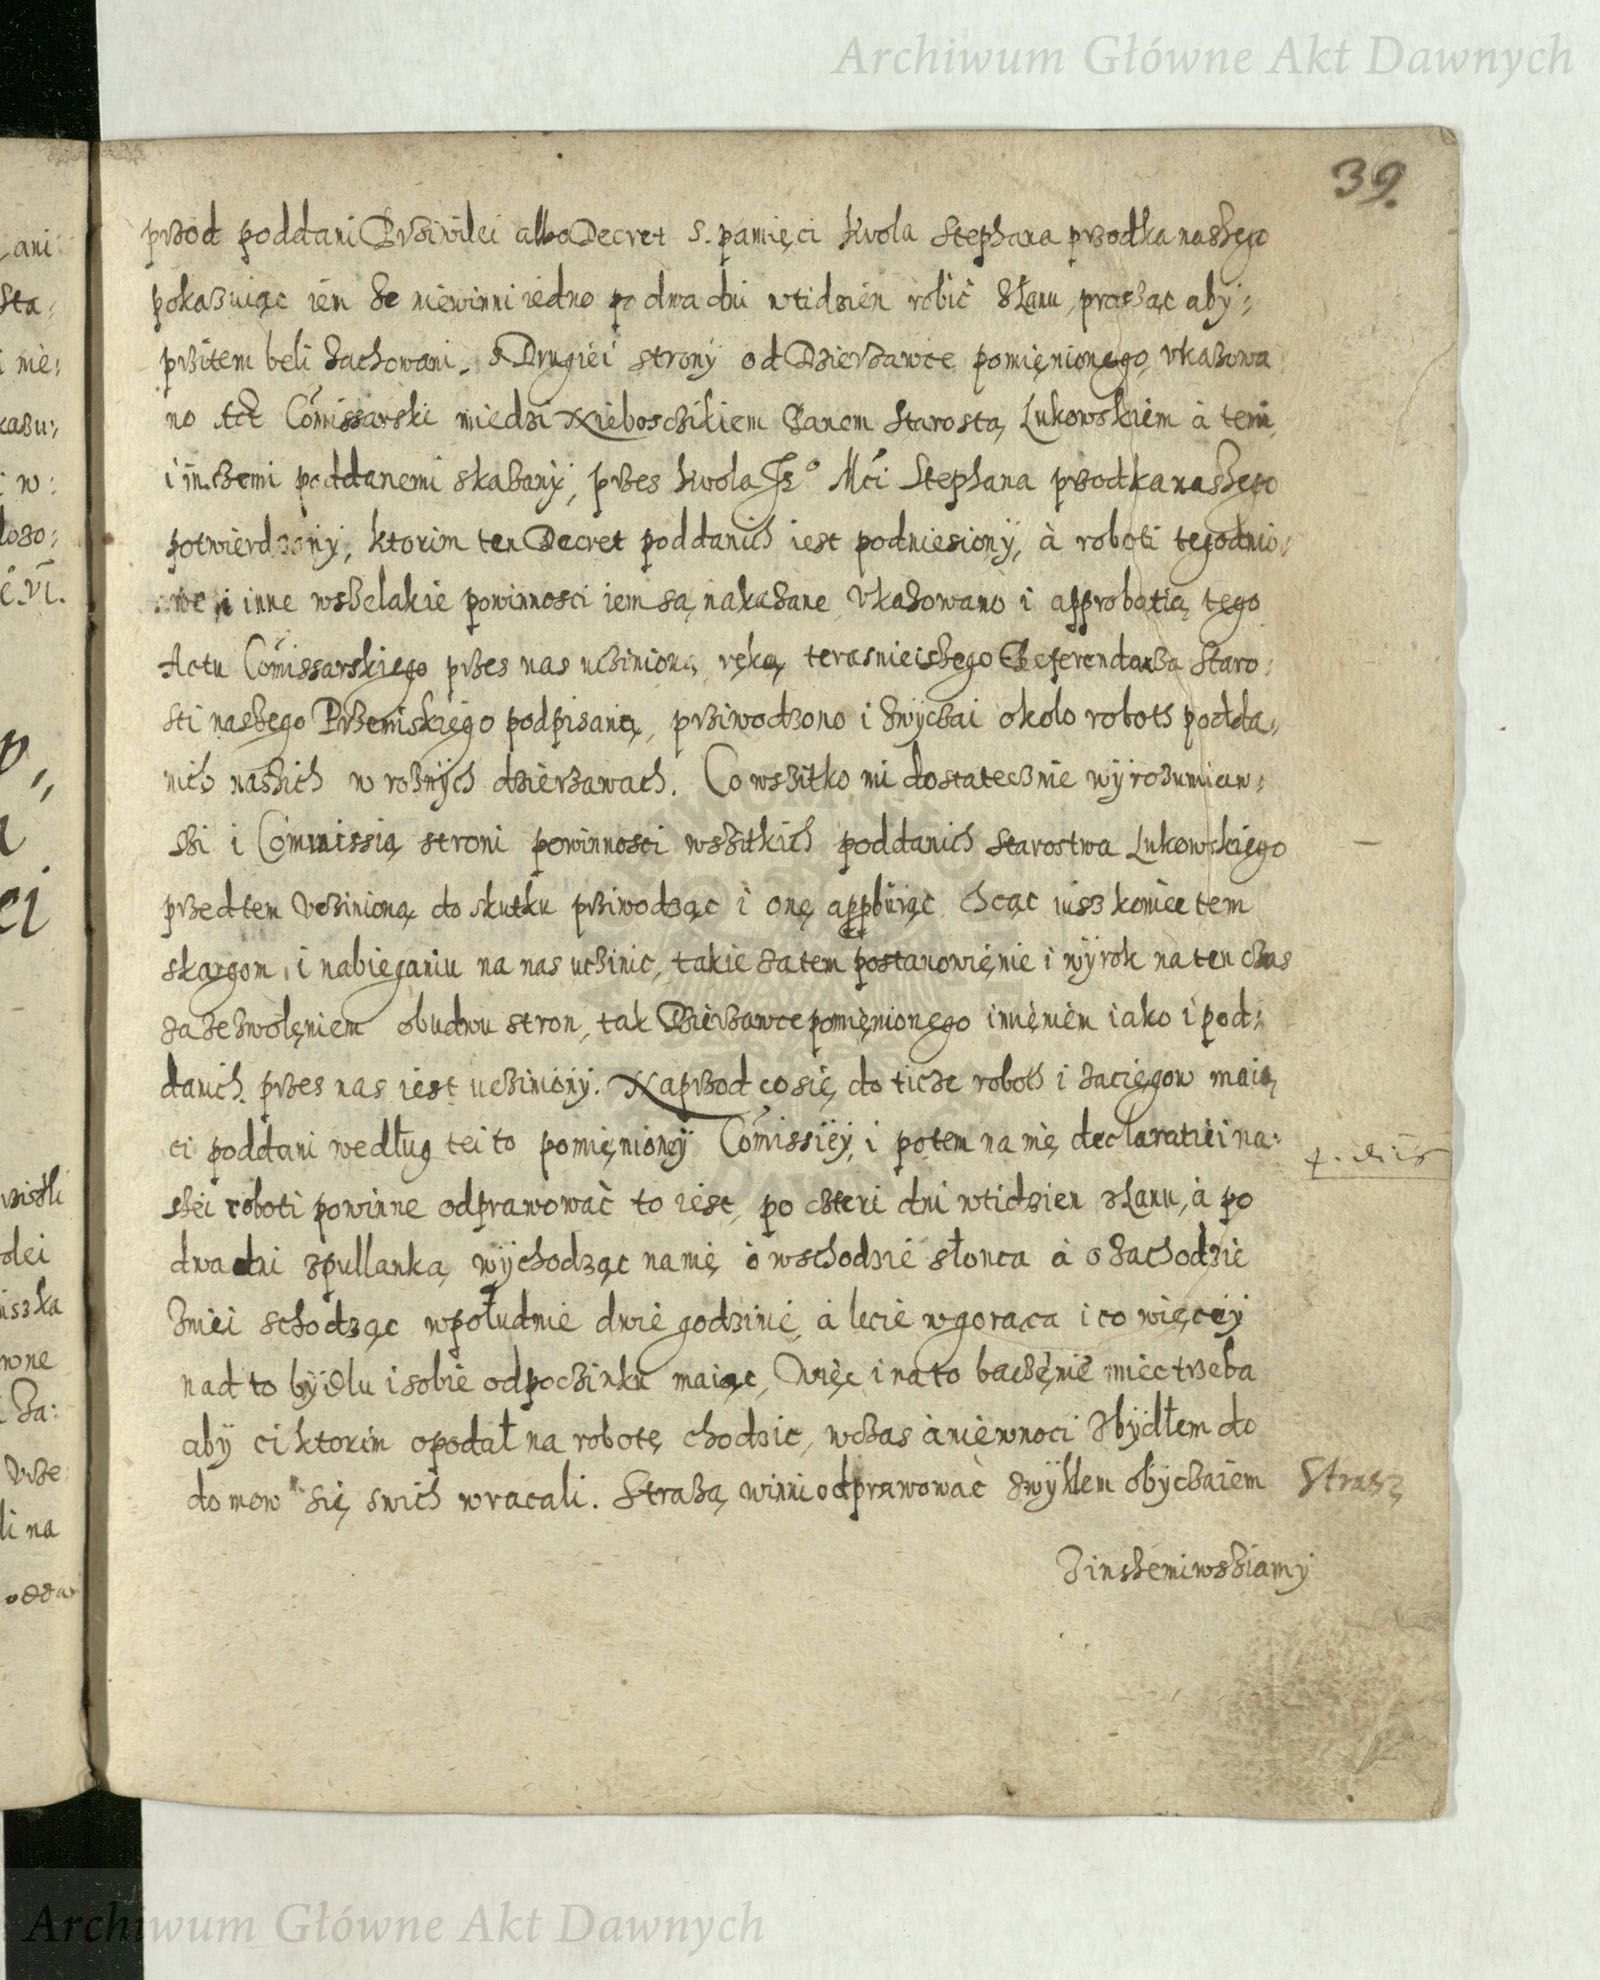 Archiwum Główne Akt Dawnych
39.
przod poddani Przivilei albo Decret S. pamięci Krola Stephana przodka naszego
pokazuiąc iem ze niewinni iedno po dwa dni wtidzien robić z Łanu, prosząc aby
przitem beli zachowani. z Drugiei strony od Dzierzawce pomięnionego, vkazowa
no Act Comissarski miedzi Nieboszczikiem Panem Starostą Lukowskiem à temi
i inszemi poddanemi skazany, przes Krola Jeº Mći Stephana przodka naszego
potwierdzony, ktorim ten Decret poddanich iest podniesiony, à roboti tegodnio,
we i inne wszelakie powinnosci iem są nakazane vkazowano i approbatią tego
Actu Comissarskiego przes nas uczinioną, ręką terasnieiszego Referendarza Staro,
sti naszego Przemiskiego podpisaną, przivodzono i zwyczai okolo roboth podda,
nich naszich w roznych dzierzawach. Co wszitko mi dostatecznie wyrozumiaw,
szi i Commissią stroni powinnosci wszitkich poddanich Starostwa Lukowskiego
przedtem vczinioną do skutku przivodząc i onę appbuiąc chcąc iusz koniec tem
skargom, i nabieganiu na nas uczinic, takie zatem postanowięnie i wyrok na ten czas
za zezwolęniem obudwu stron, tak Dzierzawce pomięnionego imięniem iako i pod,
danich przes nas iest ucziniony. Naprzod co się do ticze roboth i zacięgow maią
ci poddani według tei to pomięnioney Comissiiey, i potem na nię declaratiei na,
szei roboti powinne odprawować to iest, po czteri dni wtidzien z Łanu, à po
dwa dni z pullanka, wychodząc na nię o wschodzie słonca à o zachodzie
zniei schodząc wpołudnie dwie godzinie, à lecie w gorąca i co więcey
nad to bydlu i sobie odpoczinku maiąc, Więc i na to baczęnie miec trzeba
aby ci ktorim opodał na robotę chodzic, wczas à nie w noci z bydłem do
domow się swich wracali. Strażą winni odprawować zwykłem obyczaiem
Strasz
Zinszemi wsziamy
Archiwum Główne Akt Dawnych